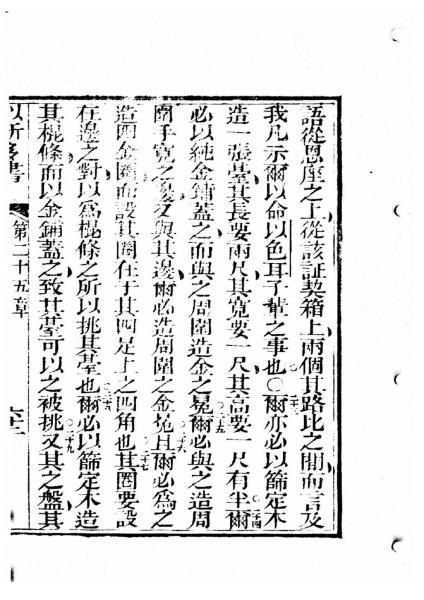 語從恩座之上從該証契箱上兩個其路比之間而言及
我凡示爾以命以色耳子輩之事也〇爾亦必以篩定木
造一張臺其長要兩尺其寬要一尺其高要一尺有半爾
必以純金鋪蓋之而與之周圍造金之冕爾必與之造周
圍手寬之邊又與其邊爾必造周圍之金冕且爾必為之
造四金圈而設其圈在于其四足上之四角也其圈要設
在邊之對以為棍條之所以挑其臺也爾必以篩定木造
其棍條而以金鋪蓋之致其臺可以之被挑又其之盤其
以所多書 第二十五章